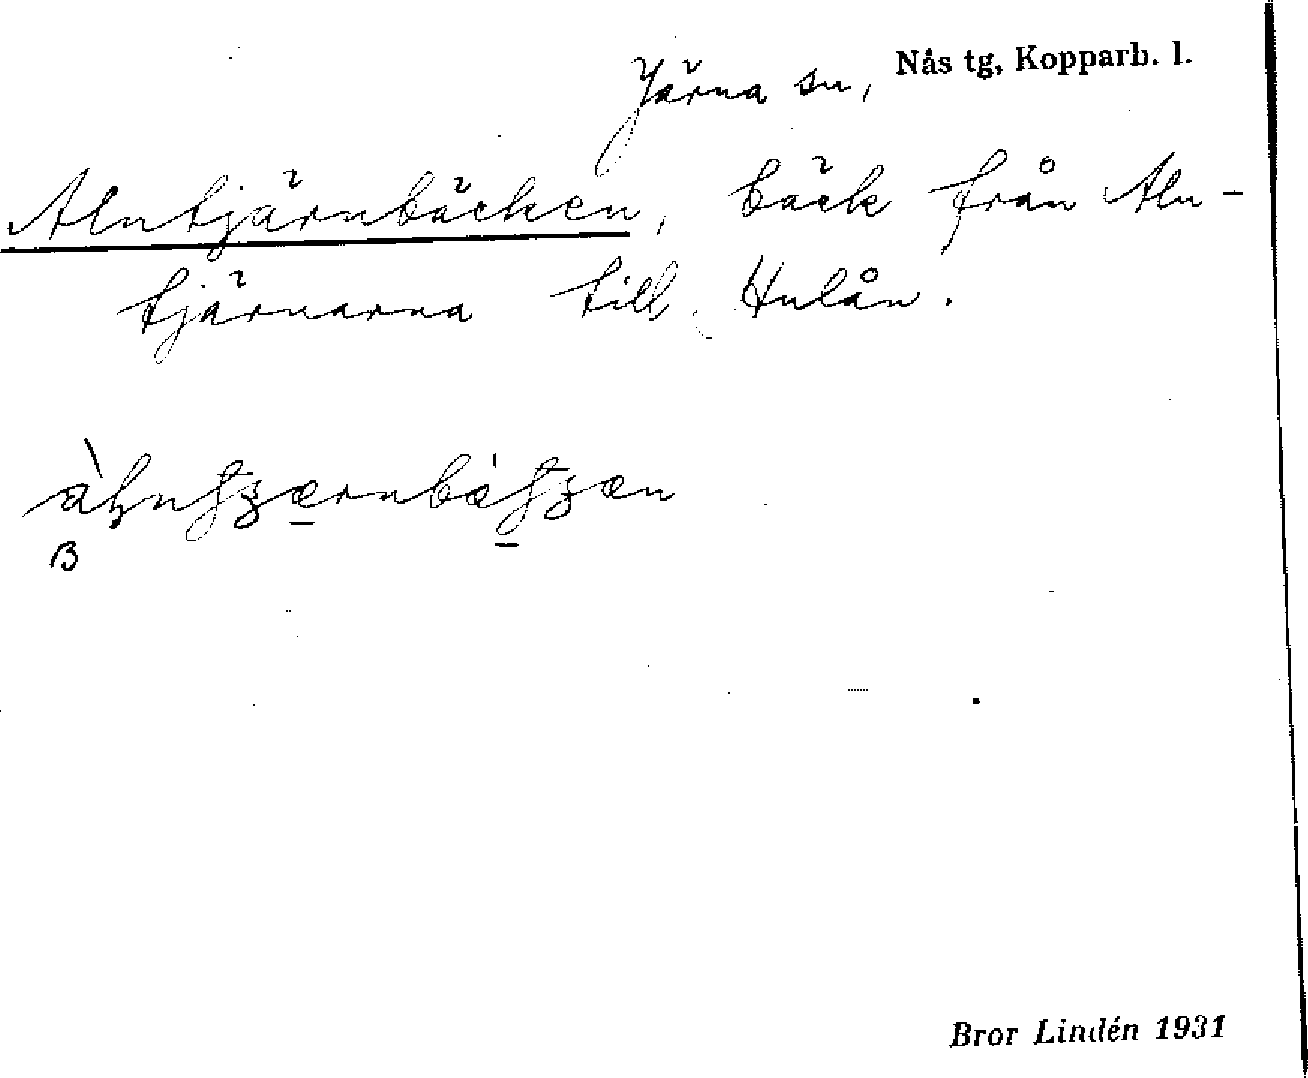 Järna sn, Nås tg, Kopparb. l.
Alntjärnbäcken, bäck från Aln-
tjärnarna till Hulån.
B
Bror Lindén 1931